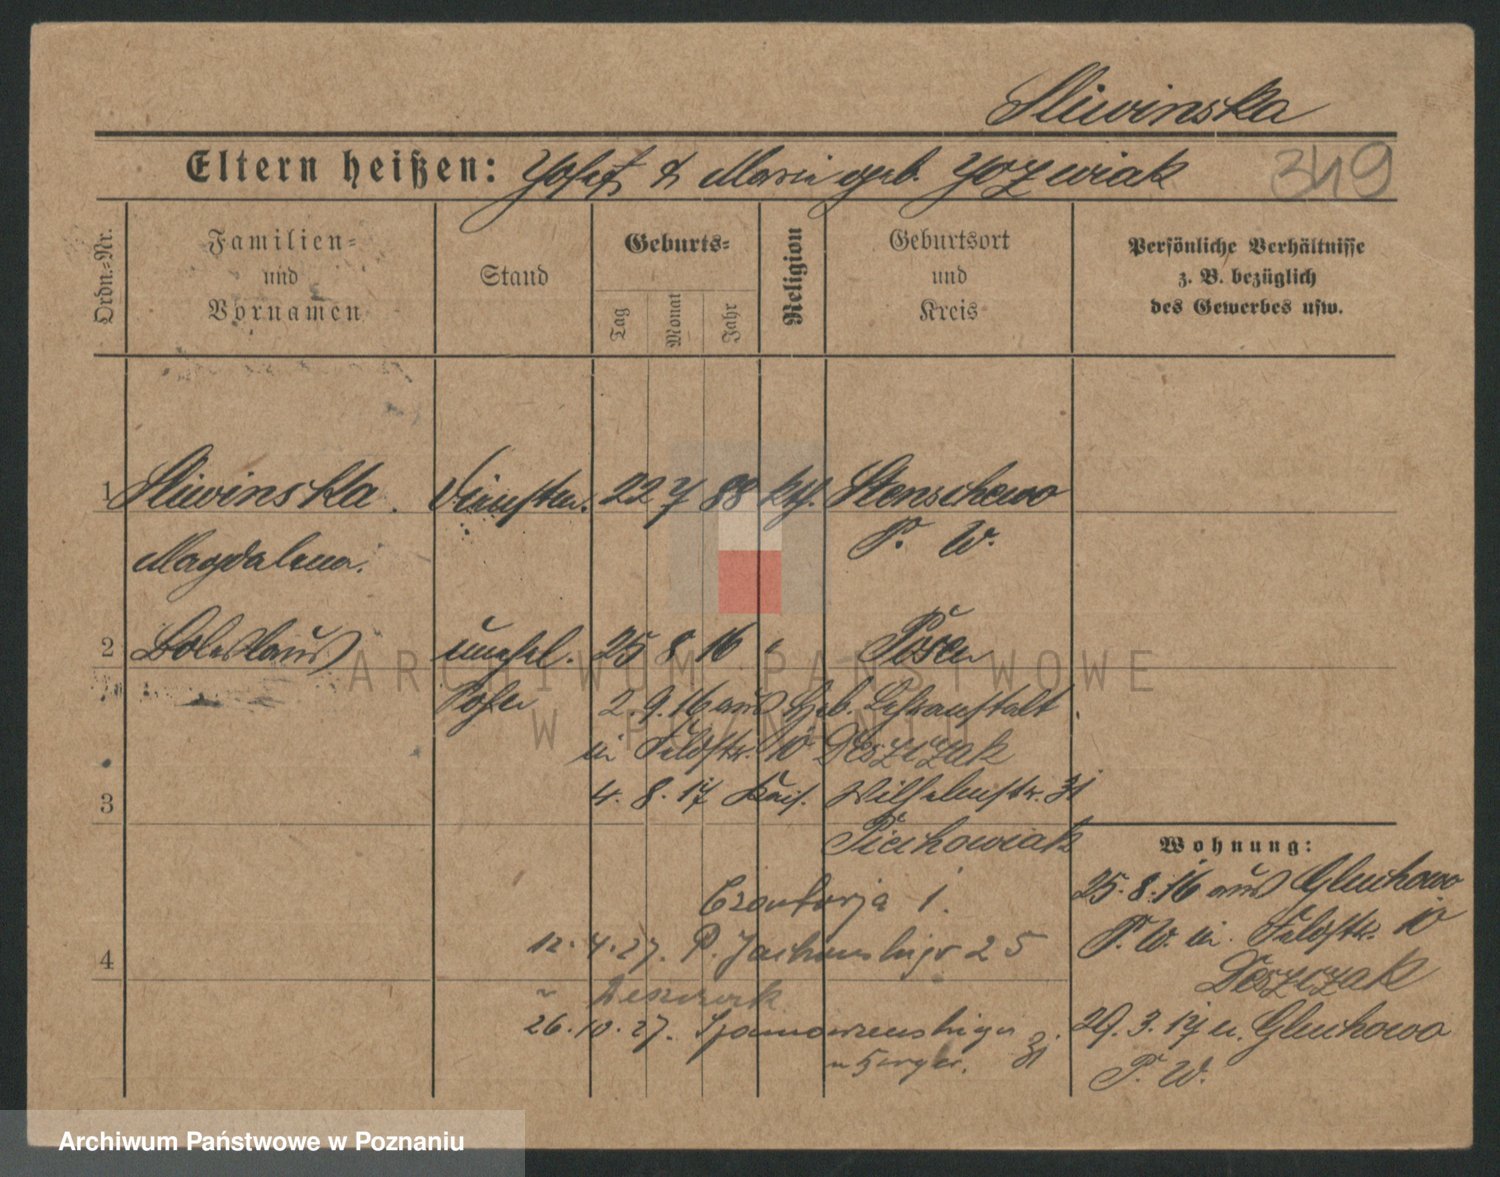 Sliwinska
Eltern heißen: Josef & Maria geb. Jozwiak
349
Ordn.-Nr.
Familien- und Vornamen
Stand
Geburts-
Tag
Monat
Jahr
Religion
Geburtsort und Kreis
Persönliche Verhältnisse z. B. bezüglich des Gewerbes usw.
1 Sliwinska. 22 7 88 kth. Stenschewo
Magdalena. P. W.
2 Boleslaus unehel. 25 8 16 " Posen
Posen 2.9.16 aus Heb. Lehranstalt
in Feldstr. 10 Deszczak
3 4. 8. 17 Kais. Wilhelmstr. 31
Piechowiak
Wohnung:
25.8.16 aus Gluchowo
P. W. in Feldstr. 10
Deszczak
29. 3. 17 n. Gluchowo
P. W.
1.
4 12. 4. 27. P. 25
26. 10. 27. 31
ARCHIWUM PAŃSTWOWE
W POZNANIU
Archiwum Państwowe w Poznaniu